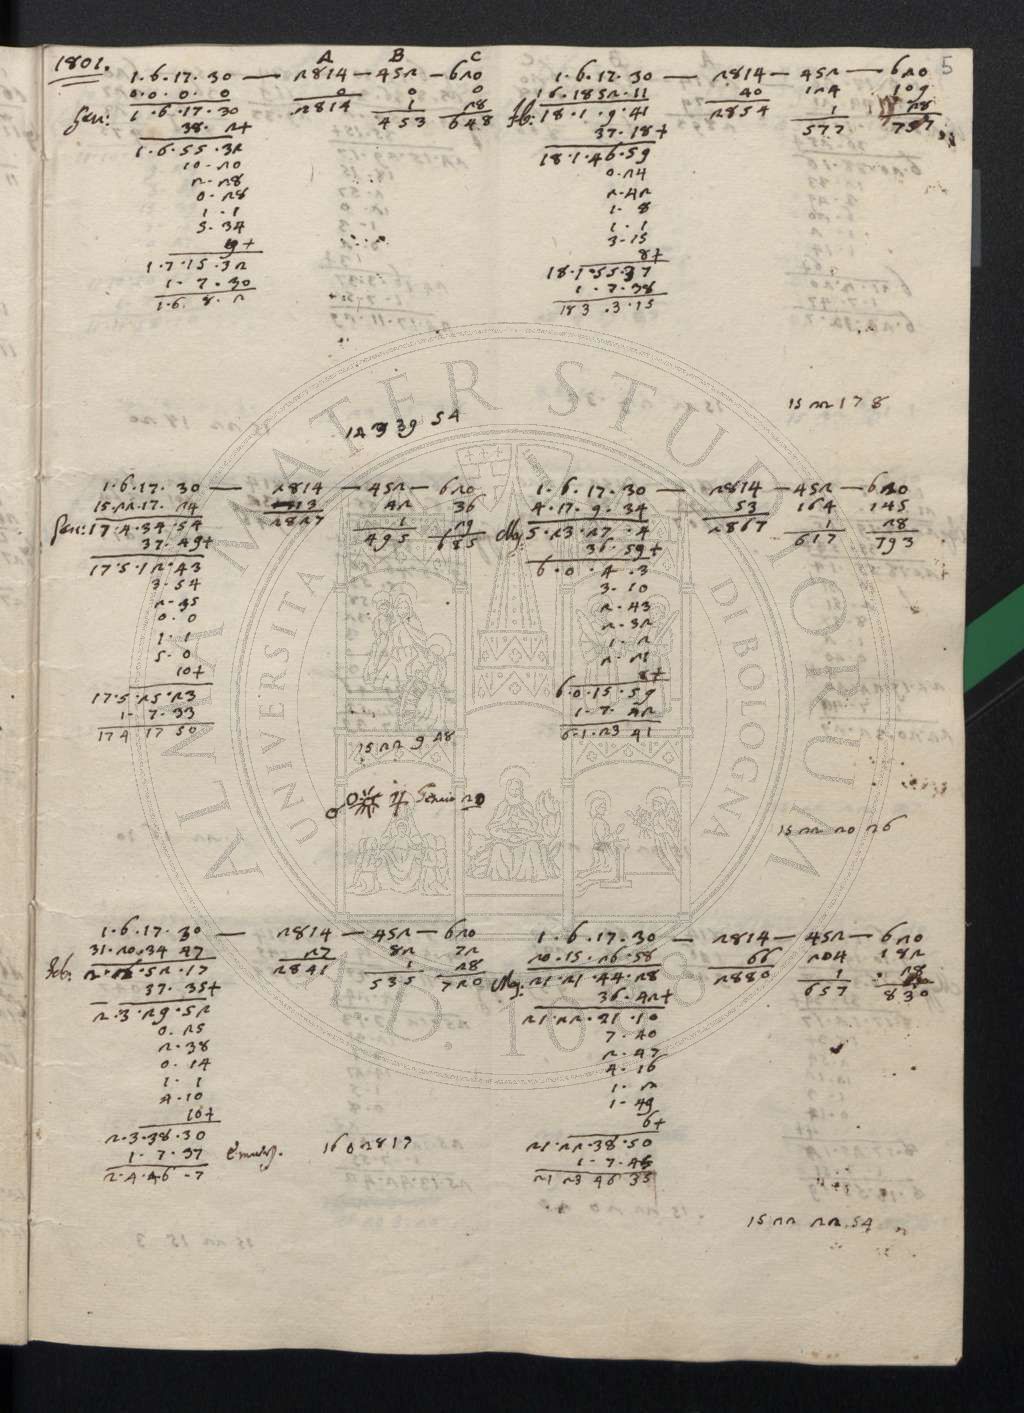 1801.
A B C
1·6·17·30 — 2814 — 452 — 620
0·0·0·0 0 0 0
Gen: 1·6·17·30 2814 1 28
453 648
38·2+
1·6·55·32
10·20
2·28
0·28
1·1
5·34
9+
1·7·15·32
1·7·30
1·6·8·2
5
1·6·17·30 — 2814 — 452 — 620
16·1852·11 40 124 109
Feb: 18·1·9·41 2854 1 28
577 757
37·18+
18·1·46·59
0·24
2·42
1·8
1·1
3·15
8+
18·1·55·37
1·7·38
183·3·15
15 22 17 8
14 3 39 54
1·6·17·30 — 2814 — 452 — 620
15·22·17·24 13 42 36
Gen: 17·4·34·54 2827 1 29
495 685
37·49+
17·5·12·43
3·54
2·35
0·0
1·1
5·0
10+
17·5·25·23
1·7·33
174 17 50
15 22 9 48
1·6·17·30 — 2814 — 452 — 620
4·17·9·34 53 164 145
Mg: 5·23·27·4 2867 1 28
617 793
36·59+
6·0·4·3
3·10
2·43
2·32
1·2
2·21
8+
6·0·15·59
1·7·42
6·1·23 41
☍ ☼ ♃ 20
15 22 20 26
1·6·17·30 — 2814 — 452 — 620
31·20·34 47 27 82 72
Feb: 2·26·52·17 2841 1 28
535 720
37·35+
2·3·29·52
0·25
2·38
0·14
1·1
4·10
10+
2·3·38·30
1·7·37
2·4·46·7
Emers. 16 0 28 17
1·6·17·30 — 2814 — 452 — 620
20·15·26·58 66 204 182
Mg: 21·21·44·28 2880 1 28
657 830
36·42+
21·22·21·10
7·40
2·47
4·16
1·2
1·49
6+
21·22·38·50
1·7·45
21 23 46 35
15 22 22·54